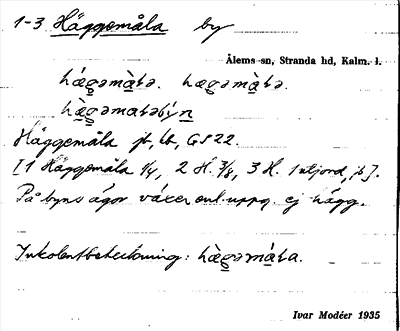 1-3 Häggemåla by
Ålems sn, Stranda hd, Kalm. l.
Häggemåla jb, tk, GS 22.
[1 Häggemåla 1/4, 2 H. 3/8, 3 H. 1 utjord, jb].
På byns ägor växer enl. uppg. ej hägg.
Inkolentbeteckning: hæ̀gəmɑ́ta.
Ivar Modéer 1935